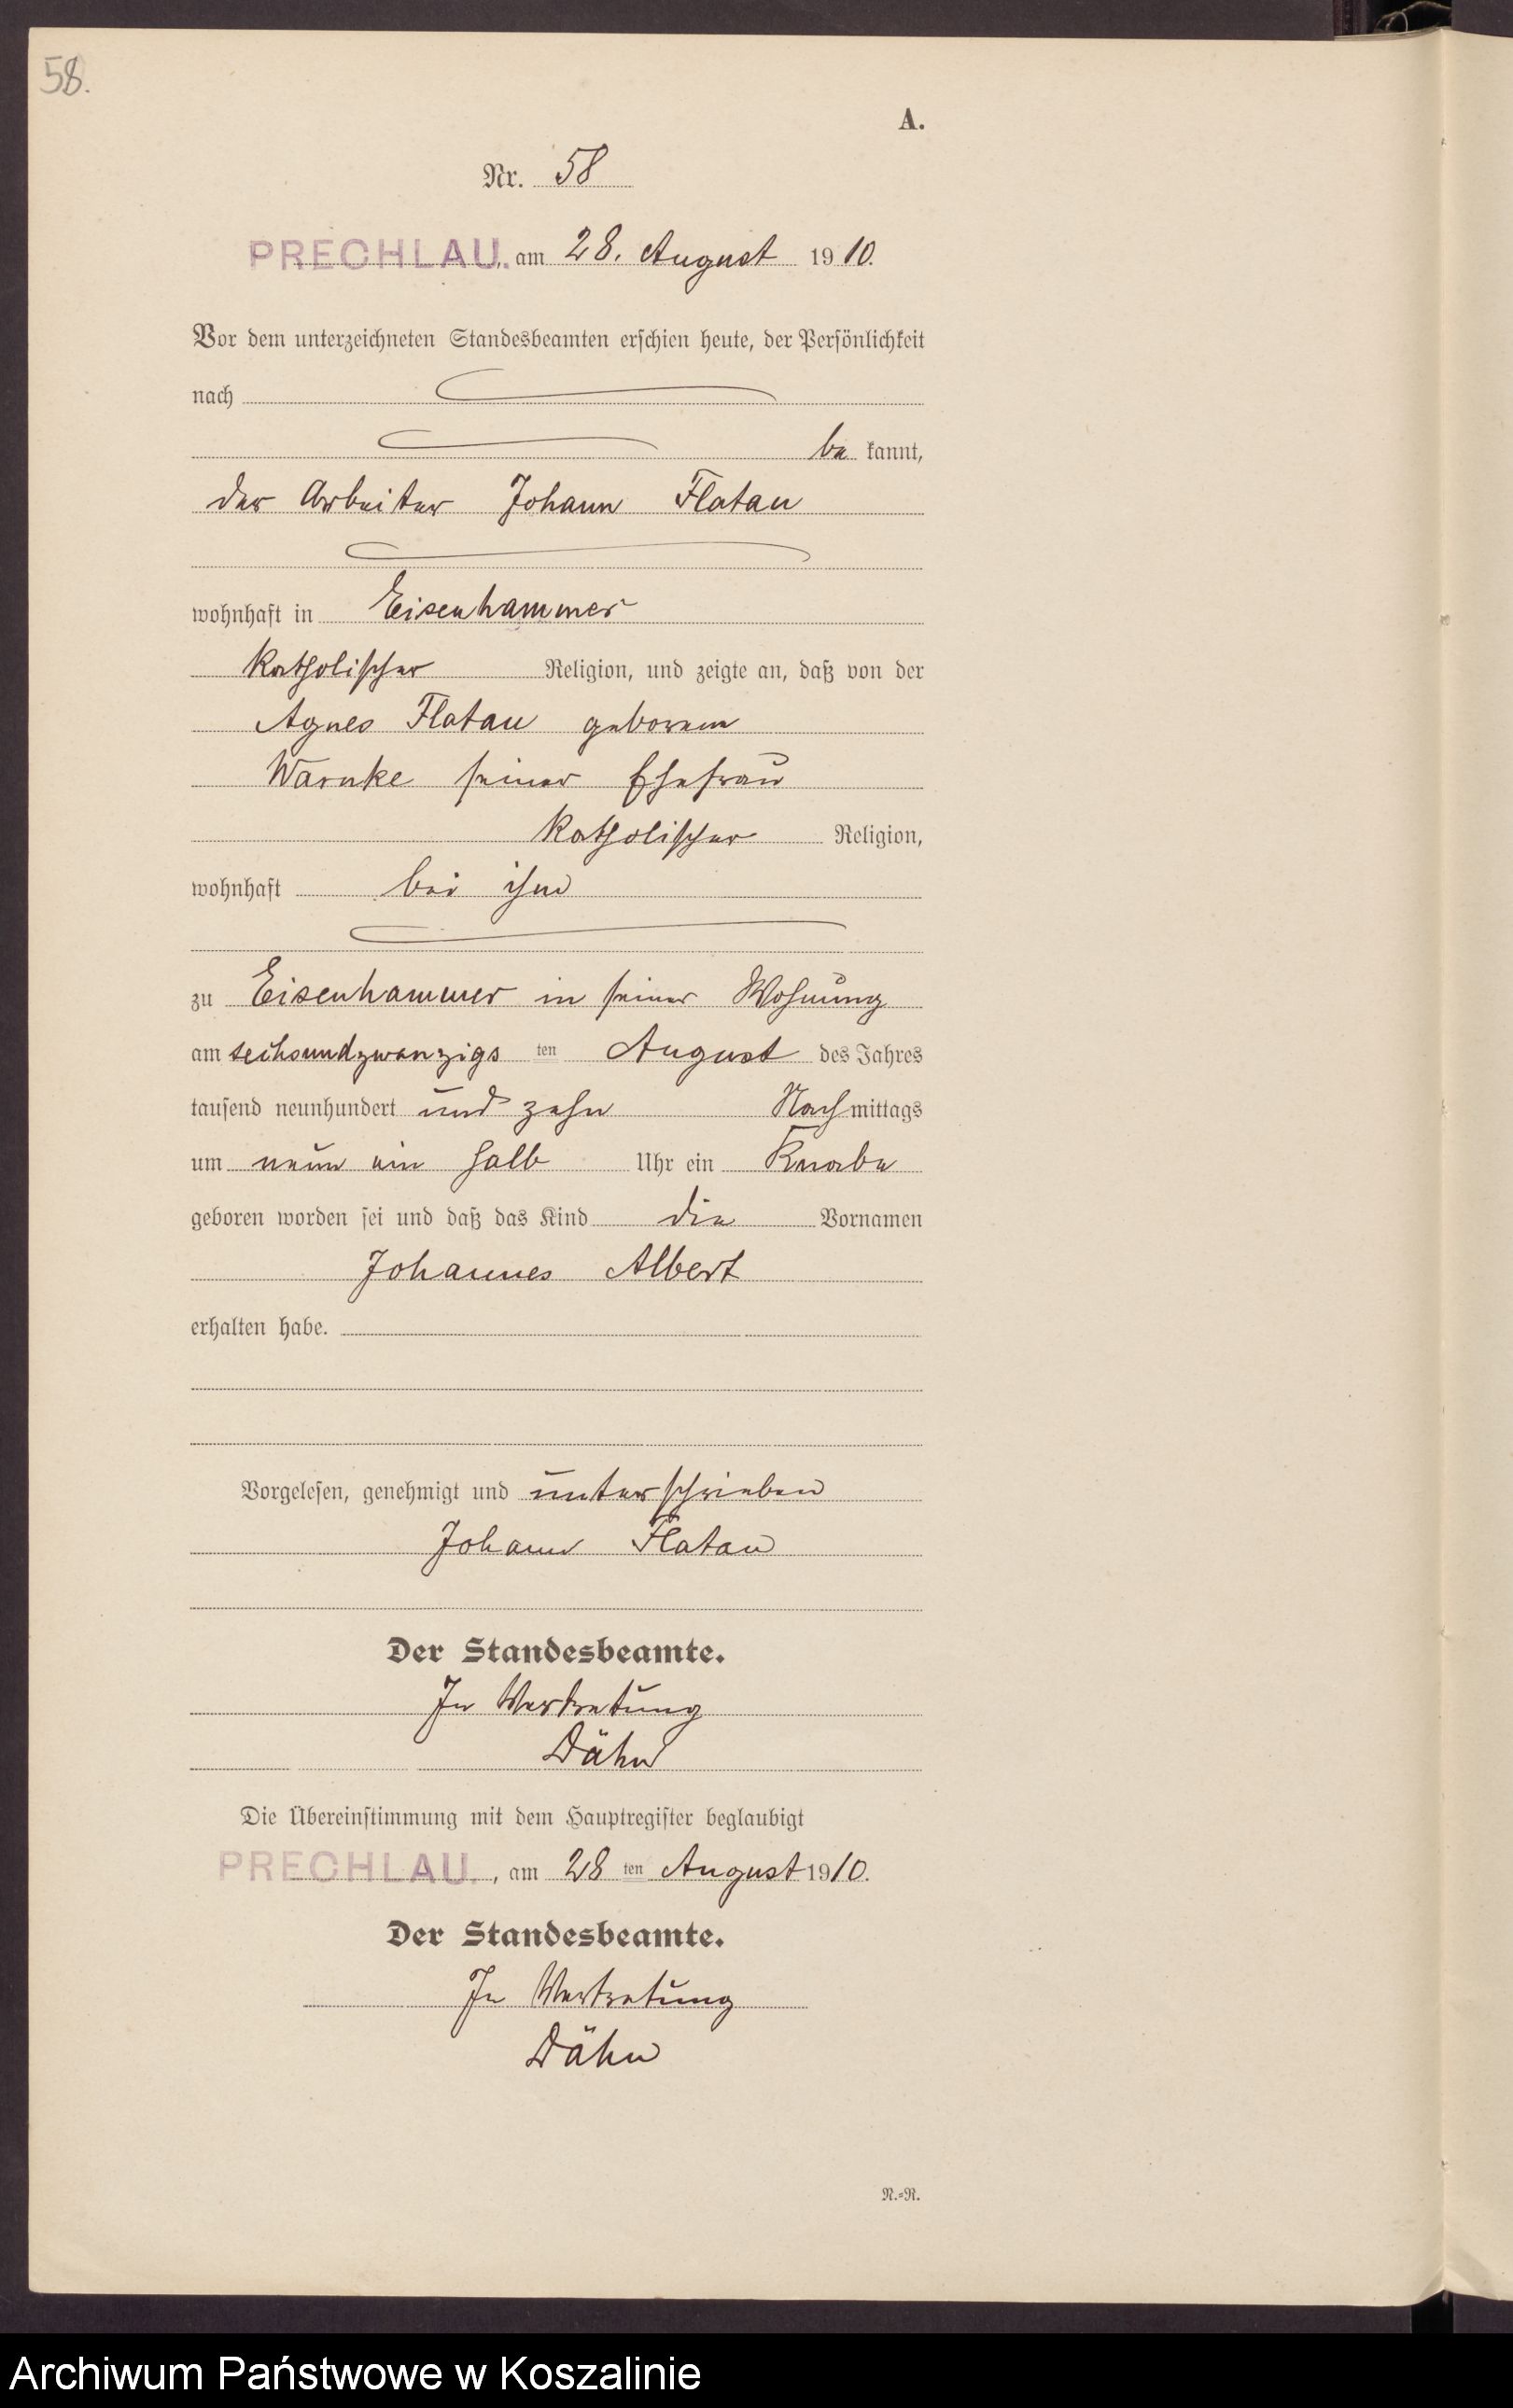 58.
A.
Nr. 58
PRECHLAU, am 28. August 1910.
Vor dem unterzeichneten Standesbeamten erschien heute, der Persönlichkeit
nach
be kannt,
der Arbeiter Johann Flatau
wohnhaft in Eisenhammer
katholischer Religion, und zeigte an, daß von der
Agnes Flatau geborene
Warnke seiner Ehefrau
katholischer Religion,
wohnhaft bei ihm
zu Eisenhammer in seiner Wohnung
am sechsundzwanzigs ten August des Jahres
tausend neunhundert und zehn Nachmittags
um neun ein halb Uhr ein Knabe
geboren worden sei und daß das Kind die Vornamen
Johannes Albert
erhalten habe.
Vorgelesen, genehmigt und unterschrieben
Johann Flatau
Der Standesbeamte.
In Vertretung
Dähn
Die Übereinstimmung mit dem Hauptregister beglaubigt
PRECHLAU., am 28 ten August 1910.
Der Standesbeamte.
In Vertretung
Dähn
N.=R.
Archiwum Państwowe w Koszalinie